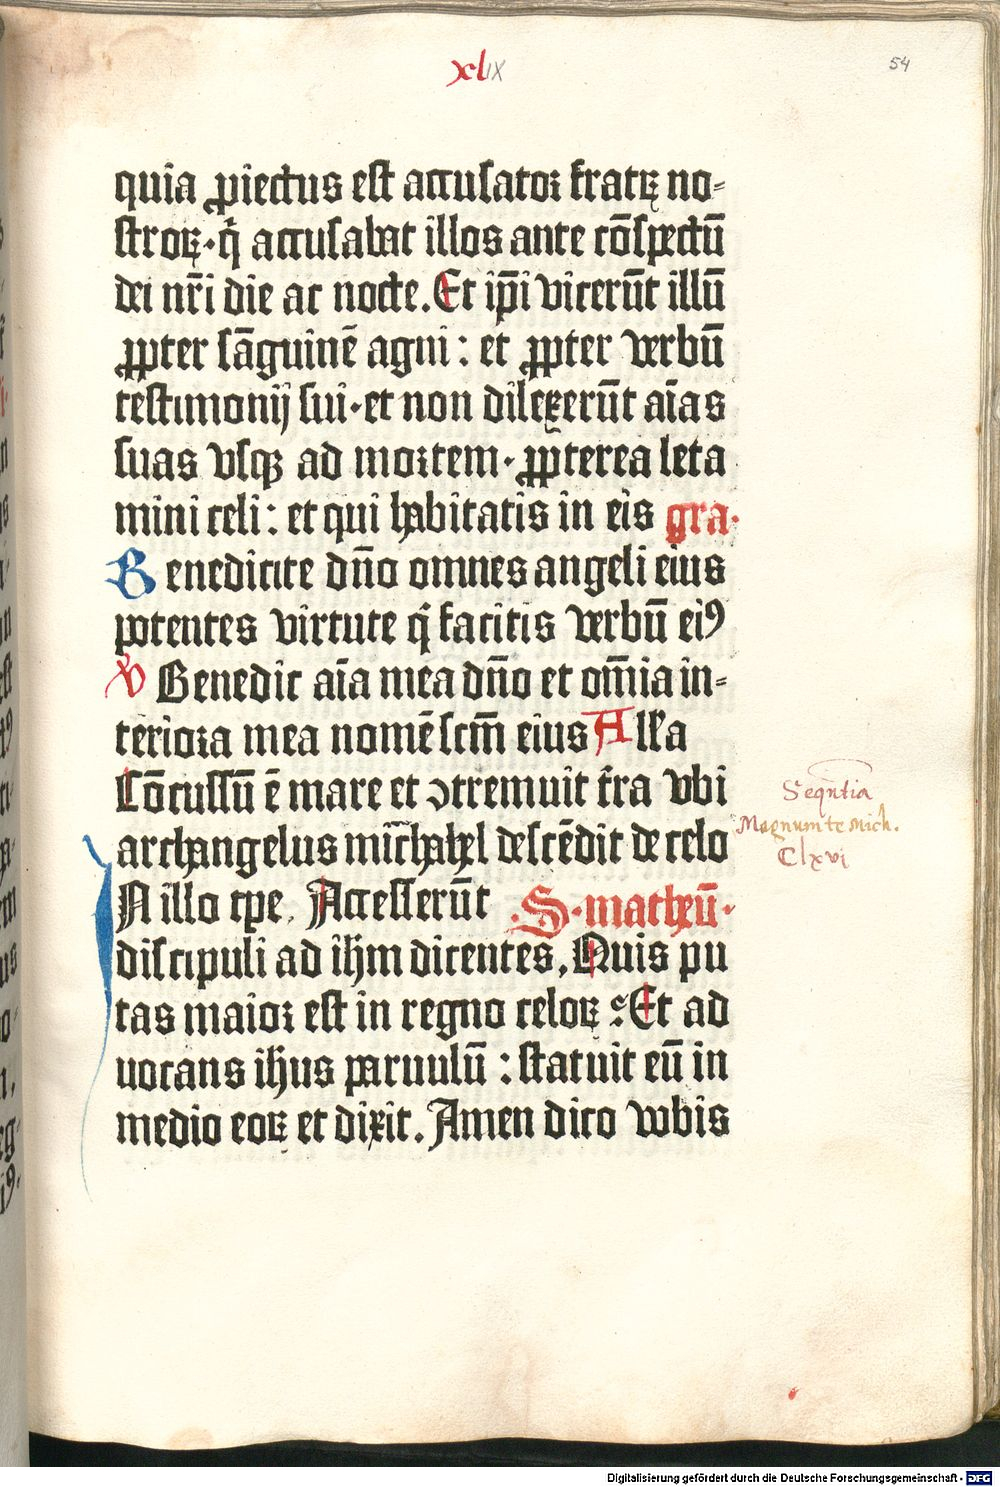 xlix
54
quia ꝓiectus est accusator fratrꝝ no⸗
stroꝝ · q̇ accusabat illos ante cōspectū
dei nr̄i die ac nocte. Et ip̄i vicerūt illū
ꝓpter sāguinē agni : et ꝓpter verbū
testimonij sui · et non dilexerūt aīas
suas vsqꝫ ad mortem · ꝓpterea leta
mini celi : et qui habitatis in eis gra·
Benedicite dn̄o omnes angeli eius
potentes virtute q̇ facitis verbū eiꝰ
℣ Benedic aīa mea dn̄o et om̄ia in⸗
teriora mea nomē scm̄ eius Alla
Cōcussū ē mare et ↄtremuit t̄ra vbi
archangelus mic̄hahel descēdit de celo
IN illo tꝑe. Accesserūt S·matheū·
discipuli ad ihm dicentes. Quis pu
tas maior est in regno celoꝝ ? Et ad
uocans ihus paruulū : statuit eū in
medio eoꝝ et dixit. Amen dico vobis
Seqūtia
Magnum te Mich.
Clxvi
Digitalisierung gefördert durch die Deutsche Forschungsgemeinschaft - DFG